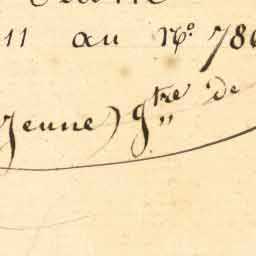 11 au Nº. 786
Jeune) gtre de